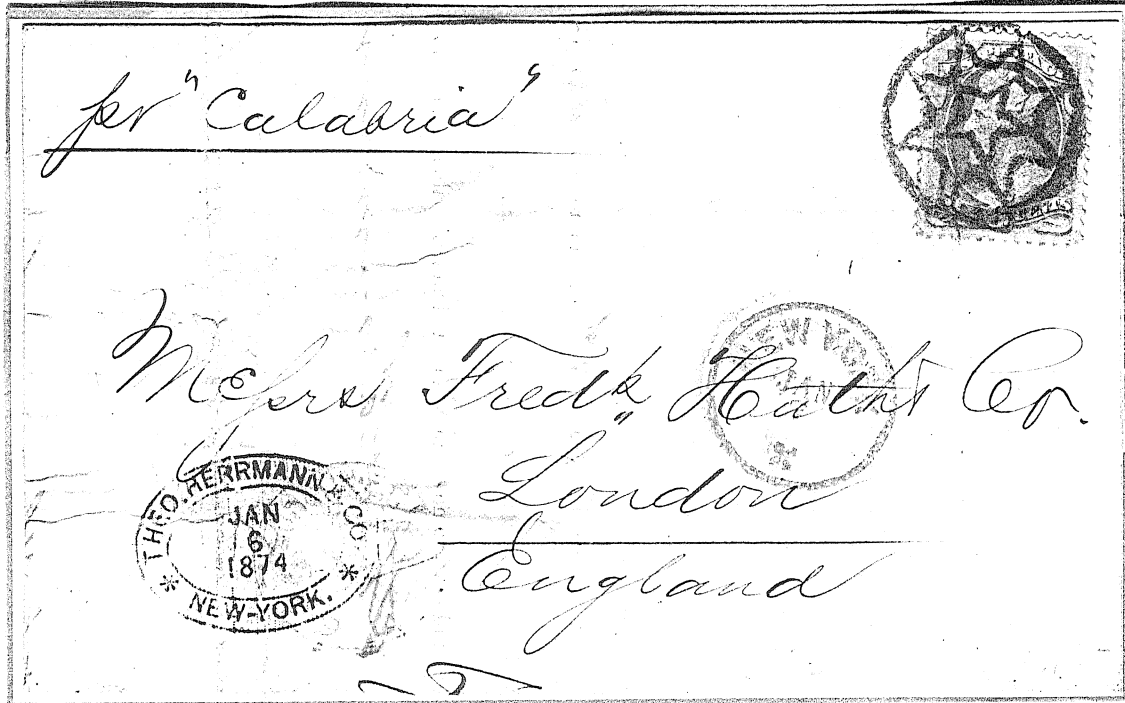 per "Calabria"
Messrs Fredk Huth & Co.
London
England
THEO. HERRMANN & CO
JAN
6
1874
* NEW-YORK. *
NEW YO
JAN